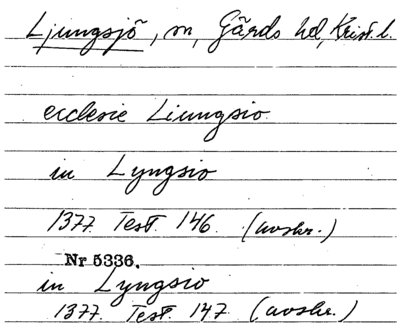 Ljungsjö, sn, Gärds hd, Krist. l.
ecclesie Liungsio
in Lyngsio
1377. Test. 146. (avskr.)
Nr 5336.
in Lyngsio
1377. Test. 147. (avskr.)